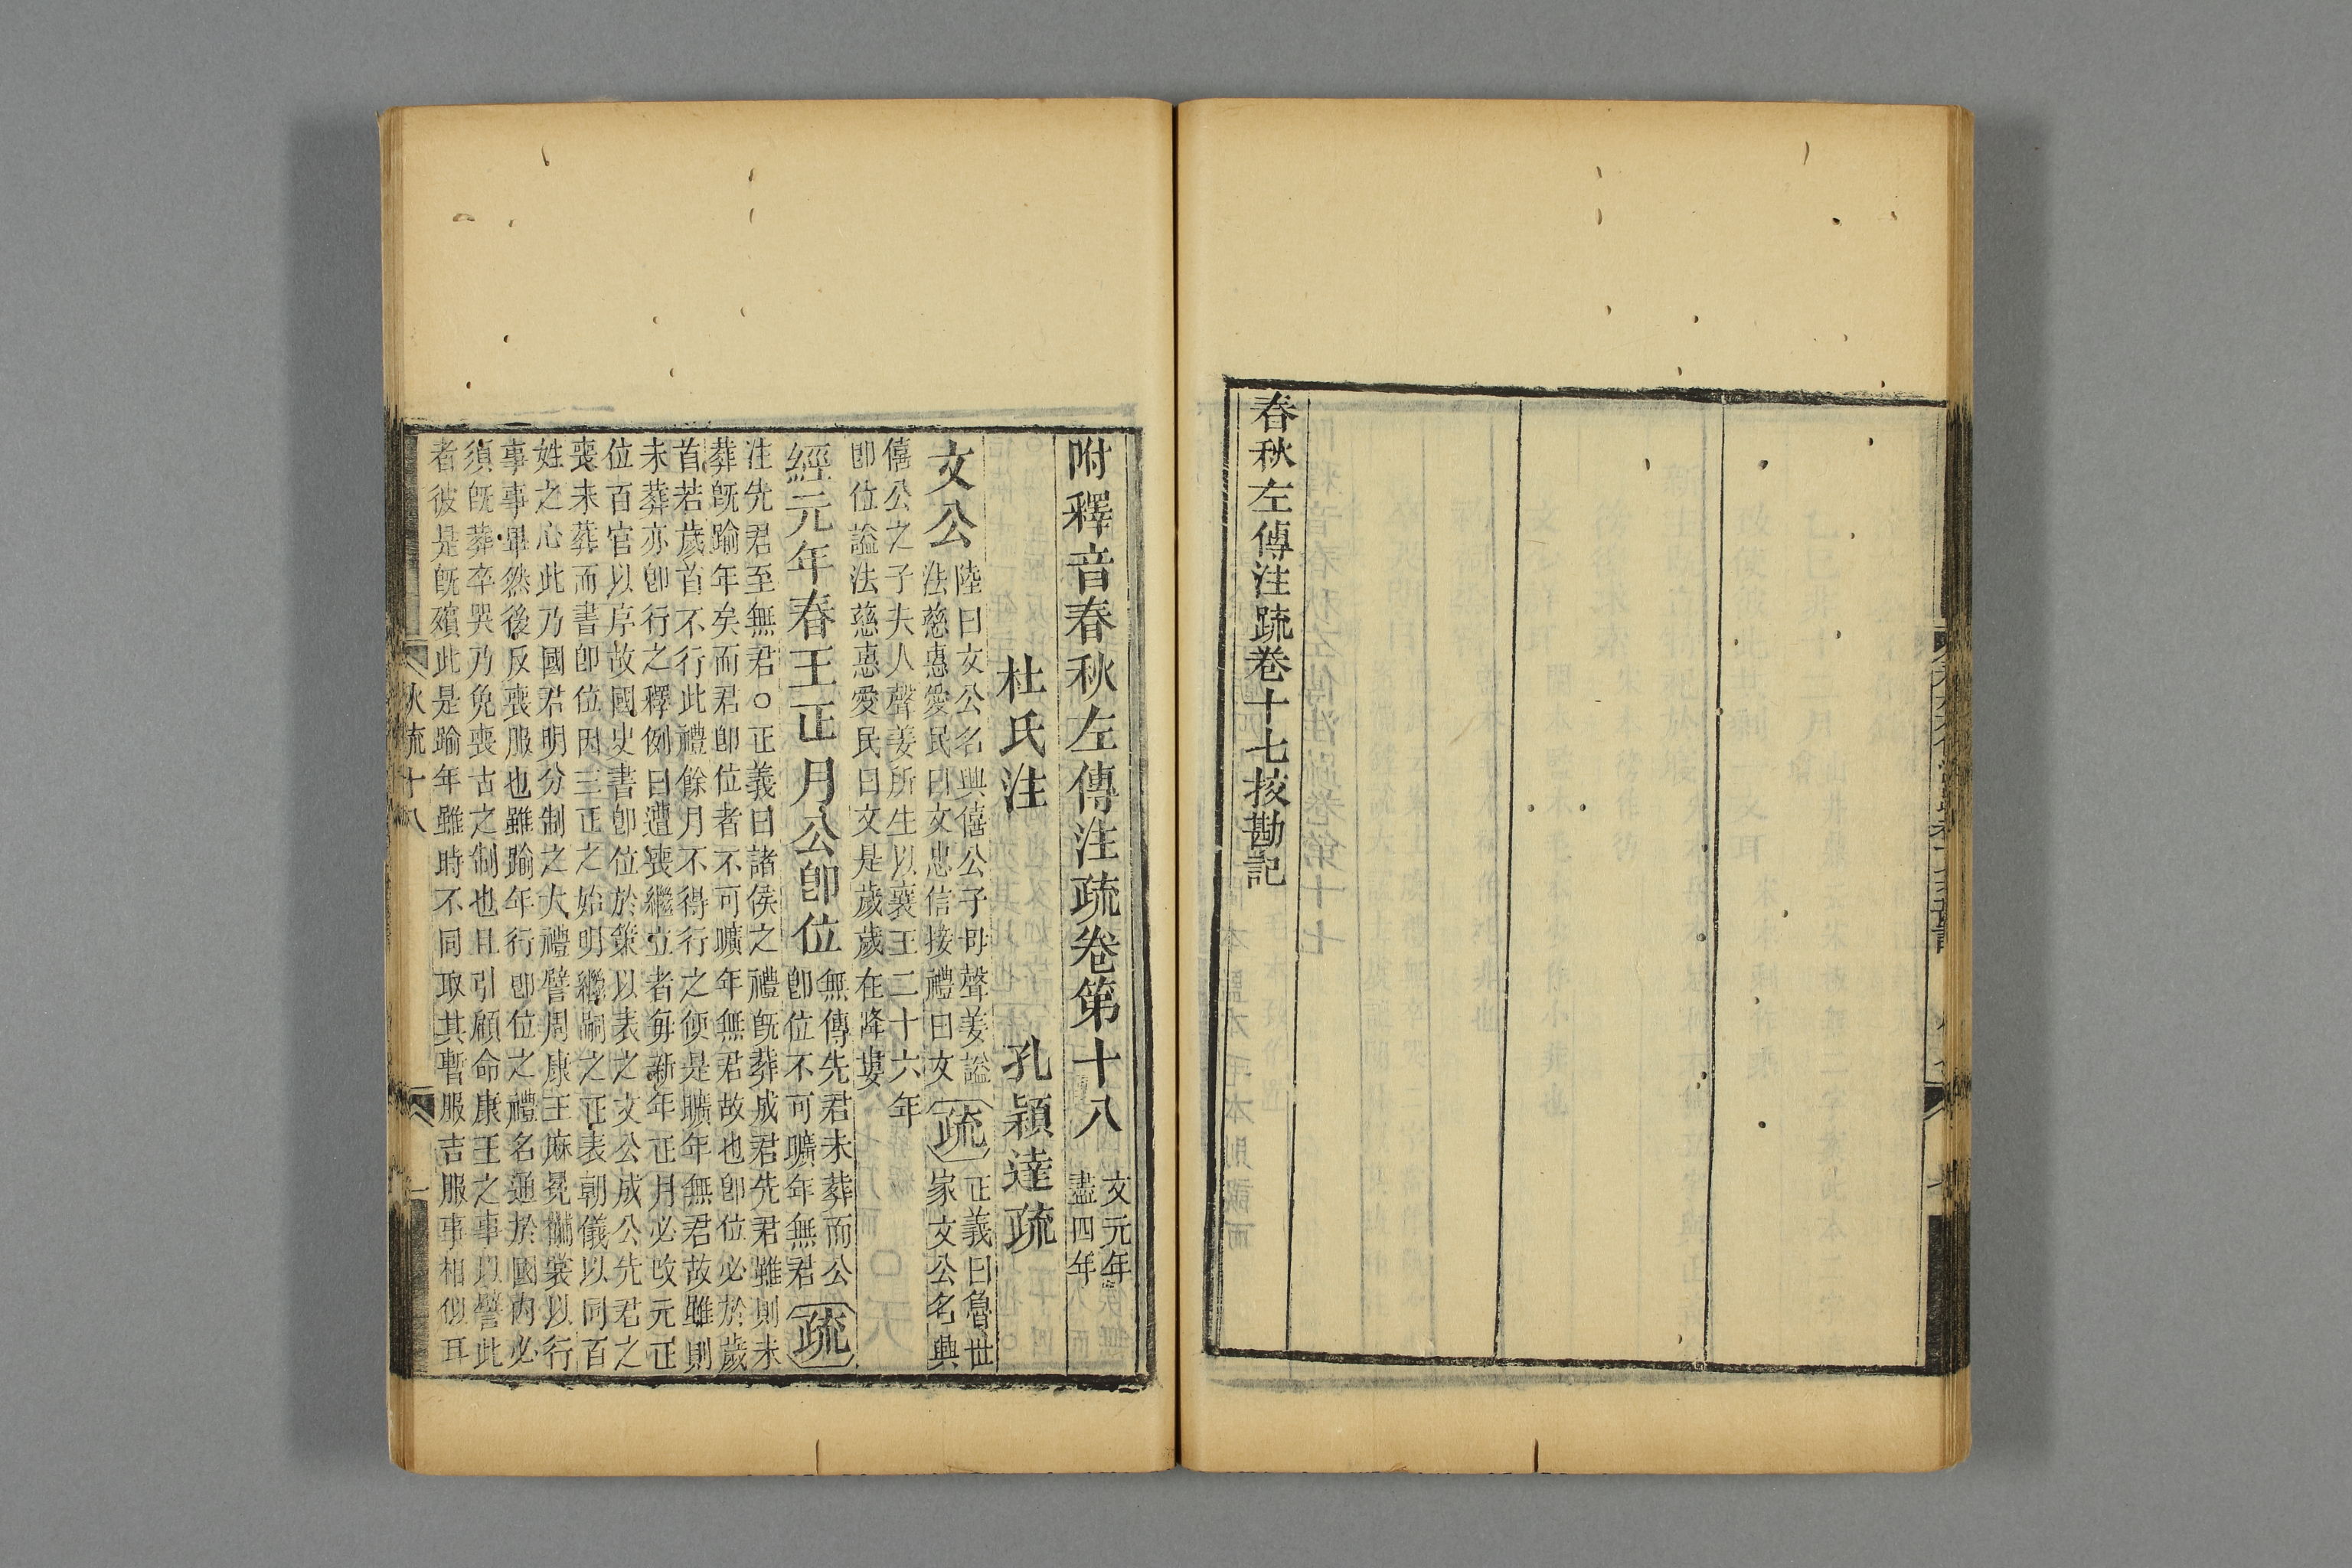 春秋左傳注疏卷十七挍勘記
附釋音春秋左傳注疏卷第十八
文元年
盡四年
杜氏注
孔穎達疏
文公
陸曰文公名興僖公子母聲姜謚
法慈惠愛民曰文忠信接禮曰文
疏
正義曰魯世
家文公名興
僖公之子夫人聲姜所生以襄王二十六年
卽位謚法慈惠愛民曰文是歲歲在降婁
經元年春王正月公卽位
無傳先君未葬而公
卽位不可曠年無君
疏
注先君至無君○正義曰諸侯之禮旣葬成君先君雖則未
葬旣踰年矣而君卽位者不可曠年無君故也卽位必於歲
首若歲首不行此禮餘月不得行之便是曠年無君故雖則
未葬亦卽行之釋例曰遭喪繼立者每新年正月必改元正
位百官以序故國史書卽位於策以表之文公成公先君之
喪未葬而書卽位因三正之始明繼嗣之正表朝儀以同百
姓之心此乃國君明分制之大禮譬周康王麻冕黼裳以行
事事畢然後反喪服也雖踰年行卽位之禮名通於國內必
須旣葬卒哭乃免喪古之制也且引顧命康王之事以譬此
者彼是旣殯此是踰年雖時不同取其暫服吉服事相似耳
秋疏十八
一